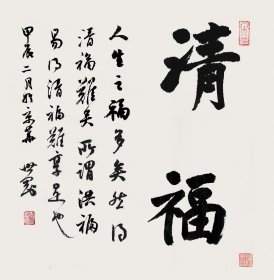 清福
人生之福多矣然得
清福难矣所谓洪福
易得清福难享是也
甲辰二月于京华